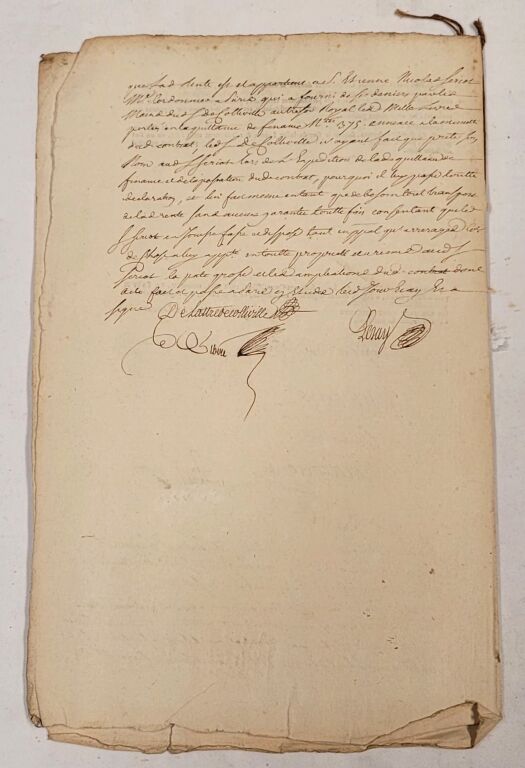 que lad. Rente est et appartient au S. Etienne Nicolas Periot
Me. Cordonnier a Paris qui a fourni de ses deniers par les
Mains dud. S. De Colliville au tresor Royal les Mille livres
portés en la quittance de finance No. 1375. annexée a la minutte
dud. contrat, led. S. De Colliville n'ayant fait que preter son
Nom aud. S. Periot lors de l'Expedition de lad. quittance de
finance et de la passation dud. contrat, pourquoi il luy passe toutte
declaration, et lui fait meme en tant que de besoin tout transport
de lad. rente sans aucune garantie toutte fois consentant que led.
S. Periot en jouisse fasse et dispose tant en ppal qu'arrerages
de chose a luy appte. en toutte proprieté et a remis aud. S.
Periot la pte. grosse et les ampliations dud. contrat dont
acte fait et passé a Paris es Etudes led. jour et an et a
signé
De Lattre De colliville
Leray